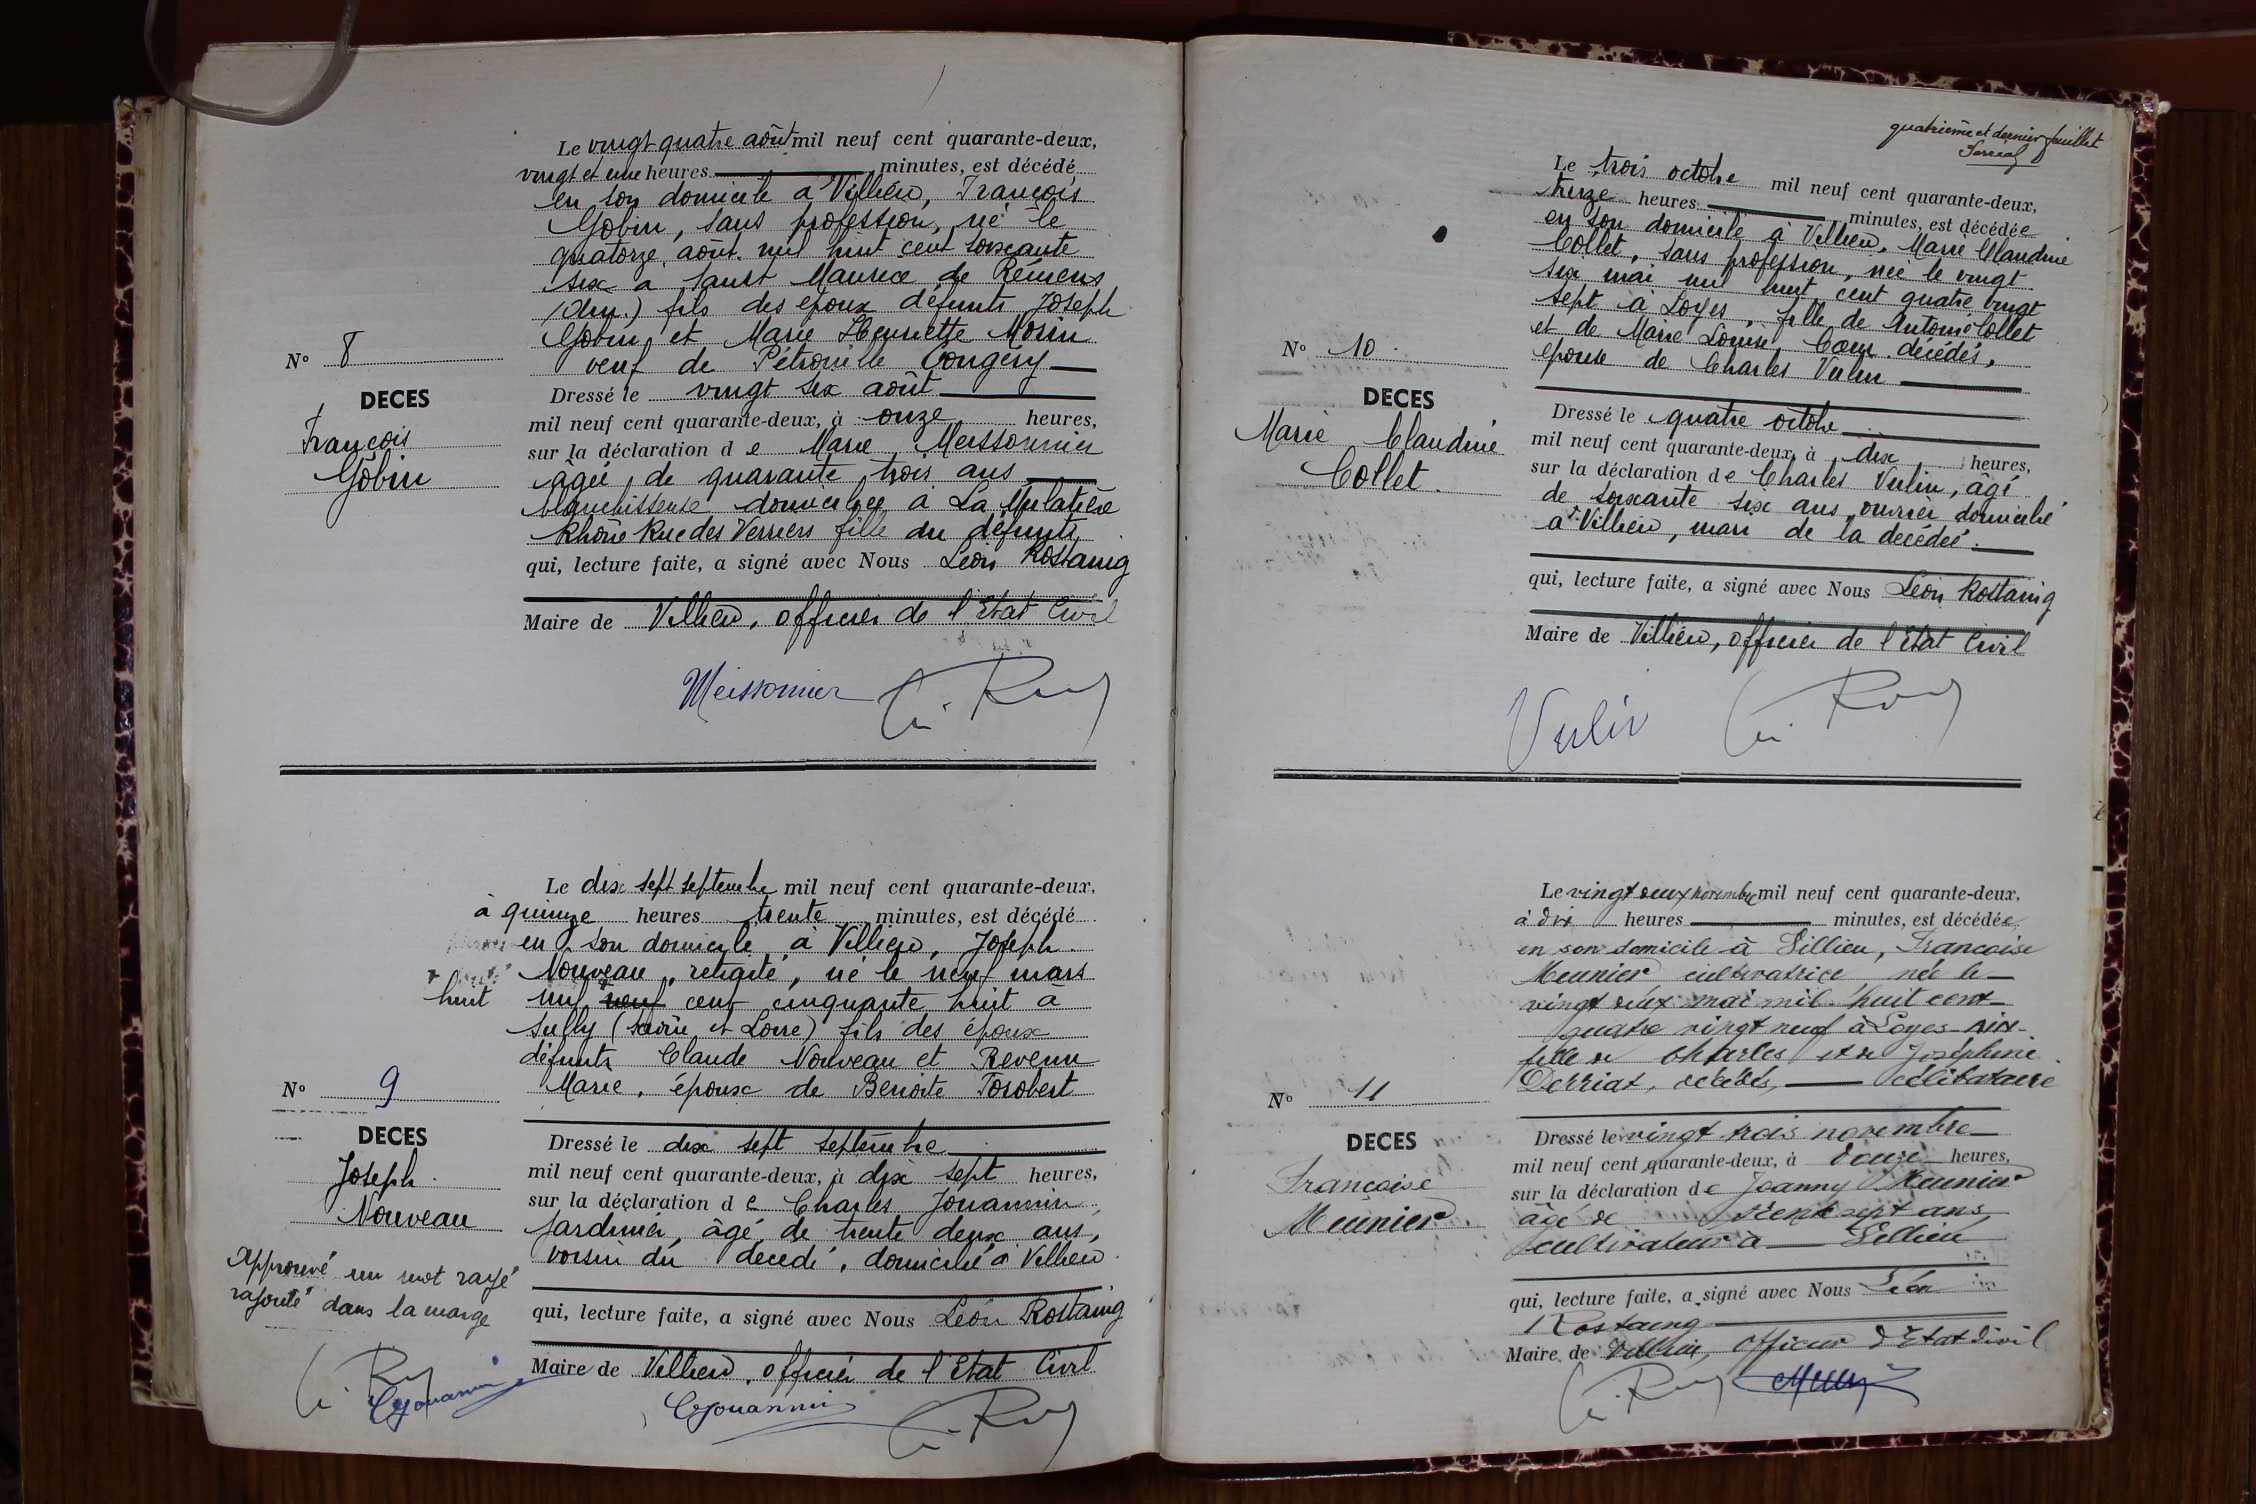 Le vingt quatre août mil neuf cent quarante-deux,
vingt et une heures minutes, est décédé
en son domicile à Villieu, François
Gobin, sans profession, né le
quatorze août mil huit cent soixante
six à Saint Maurice de Rémens
(Ain.) fils des époux défunts Joseph
Gobin et Marie Henriette Morin
veuf de Pétronille Congery
N° 8
DECES
François
Gobin
Dressé le vingt six août
mil neuf cent quarante-deux, à onze heures,
sur la déclaration de Marie Meissonnier
âgée de quarante trois ans
blanchisseuse domiciliée à La Mulatière
Rhône Rue des Verriers fille du défunt
qui, lecture faite, a signé avec Nous Léon Rostaing
Maire de Villieu, officier de l'Etat Civil
Meissonnier
Le dix sept septembre mil neuf cent quarante-deux,
à quinze heures trente minutes, est décédé
en son domicile à Villieu, Joseph
Nouveau, retraité, né le neuf mars
huit
mil neuf cent cinquante huit à
Sully (Saône et Loire) fils des époux
défunts Claude Nouveau et Revenu
Marie, époux de Benoite Forobert
N° 9
DECES
Joseph
Nouveau
Approuvé un mot rayé
rajouté dans la marge
Dressé le dix sept septembre
mil neuf cent quarante-deux, à dix sept heures,
sur la déclaration de Charles Jouannin,
Jardinier, âgé de trente deux ans,
voisin du décédé, domicilié à Villieu
qui, lecture faite, a signé avec Nous Léon Rostaing
Maire de Villieu, officier de l'Etat Civil
CJouannin
CJouannin
quatrième et dernier feuillet
Le trois octobre mil neuf cent quarante-deux,
treize heures minutes, est décédée
en son domicile à Villieu, Marie Claudine
Collet, sans profession, née le vingt
six mai mil huit cent quatre vingt
sept à Loyes, fille de Antoine Collet
et de Marie Louise Cœur décédés,
épouse de Charles Vulin
N° 10
DECES
Marie Claudine
Collet.
Dressé le quatre octobre
mil neuf cent quarante-deux, à dix heures,
sur la déclaration de Charles Vulin, âgé
de soixante six ans, ouvrier domicilié
à Villieu, mari de la décédée.
qui, lecture faite, a signé avec Nous Léon Rostaing
Maire de Villieu, officier de l'Etat Civil
Vulin
Le vingt deux novembre mil neuf cent quarante-deux,
à dix heures minutes, est décédée
en son domicile à Villieu, Françoise
Meunier cultivatrice née le
vingt deux mai mil huit cent
quatre vingt neuf à Loyes Ain
fille de Charles et de Joséphine
Derriat, décédés, célibataire
N° 11
DECES
Françoise
Meunier
Dressé le vingt trois novembre
mil neuf cent quarante-deux, à douze heures,
sur la déclaration de Joanny Meunier
âgé de trente sept ans
cultivateur à Villieu
qui, lecture faite, a signé avec Nous Léon
Rostaing
Maire de Villieu, officier d'Etat Civil